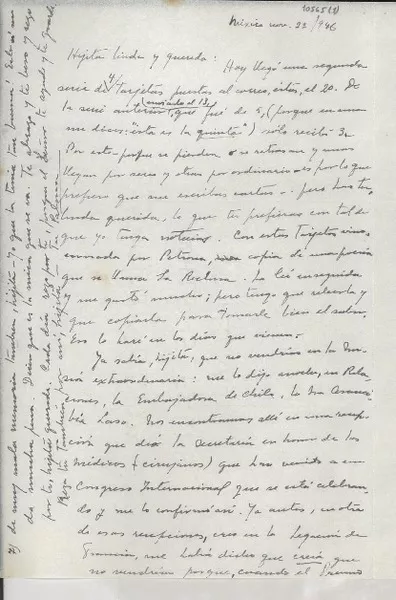 10565 (1)
México nov. 23/946
Hijita linda y querida: Hoy llegó una segunda
serie de 4/ tarjetas puestas al correo, éstas, el 20. De
la serie anterior, enviada el 13, que fué de 5, (porque en una
me dices: "ésta es la quinta") sólo recibí 3.
Por esto porque se pierden o se retrasan y unas
llegan por aereo y otras por ordinario es por lo que
prefiero que me escribas cartas. pero
querida, lo que tú prefieras con tal de
que yo tenga noticias. Con estas tarjetas vino,
enviada por Palma, copia de una poesía
que se llama La Reclusa. La leí enseguida
y me gustó mucho; pero tengo que releerla y
que copiarla para tomarle bien el sabor.
Eso lo haré en los días que vienen.
Ya sabía, hijita, que no vendrías en la
extraordinaria: me lo dijo anoche, en Rela-
ciones, la Embajadora de Chile, la
Laso. Nos encontramos allá en una recep-
ción que dió la Secretaría en honor de los
médicos (cirujanos) que han venido a un
Congreso Internacional que se está celebran-
do y me lo confirmó así. Ya antes, en otra
de esas recepciones, creo en la Legación de
Francia, me había dicho que creía que
no vendrías porque, cuando el Premio
2) de muy mala memoria tambien, hijita. Yo que la tenía tan buena! Esto me
da mucha pena. Dicen que es la misma Te abrazo y te beso y rezo
por tí, hijita querida. Cada día, rezo por tí, porque el Señor te ayude y te guarde.
Reza tú tambien por mí, hijita.